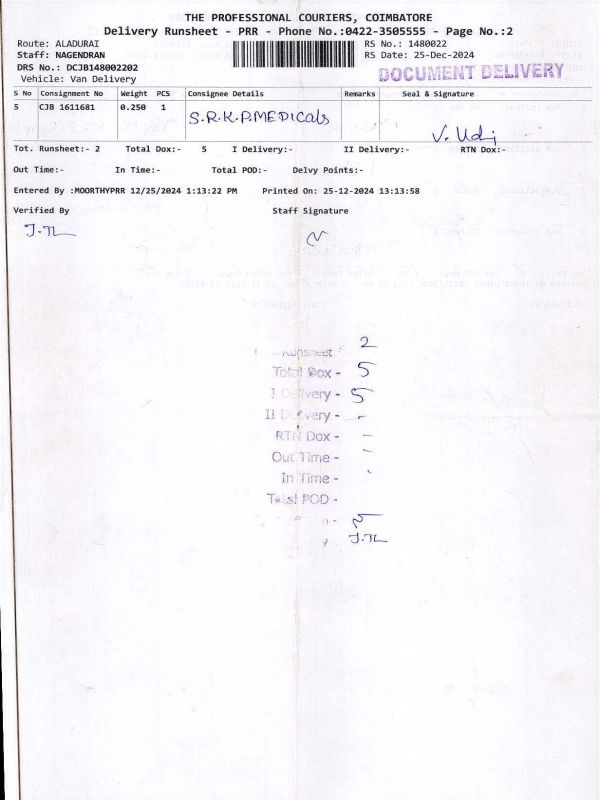 THE PROFESSIONAL COURIERS, COIMBATORE
Delivery Runsheet - PRR - Phone No.:0422-3505555 - Page No.:2
Route: ALADURAI RS No.: 1480022
Staff: NAGENDRAN RS Date: 25-Dec-2024
DRS No.: DCJB148002202 DOCUMENT DELIVERY
Vehicle: Van Delivery
S No Consignment No Weight PCS Consignee Details Remarks Seal & Signature
5 CJB 1611681 0.250 1 S.R.K.P.MEDICals
V. Udi
Tot. Runsheet:- 2 Total Dox:- 5 I Delivery:- II Delivery:- RTN Dox:-
Out Time:- In Time:- Total POD:- Delvy Points:-
Entered By :MOORTHYPRR 12/25/2024 1:13:22 PM Printed On: 25-12-2024 13:13:58
Verified By Staff Signature
Runsheet 2
Total Dox - 5
I Delivery - 5
II Delivery - -
RTN Dox - -
Out Time - -
In Time -
Total POD -